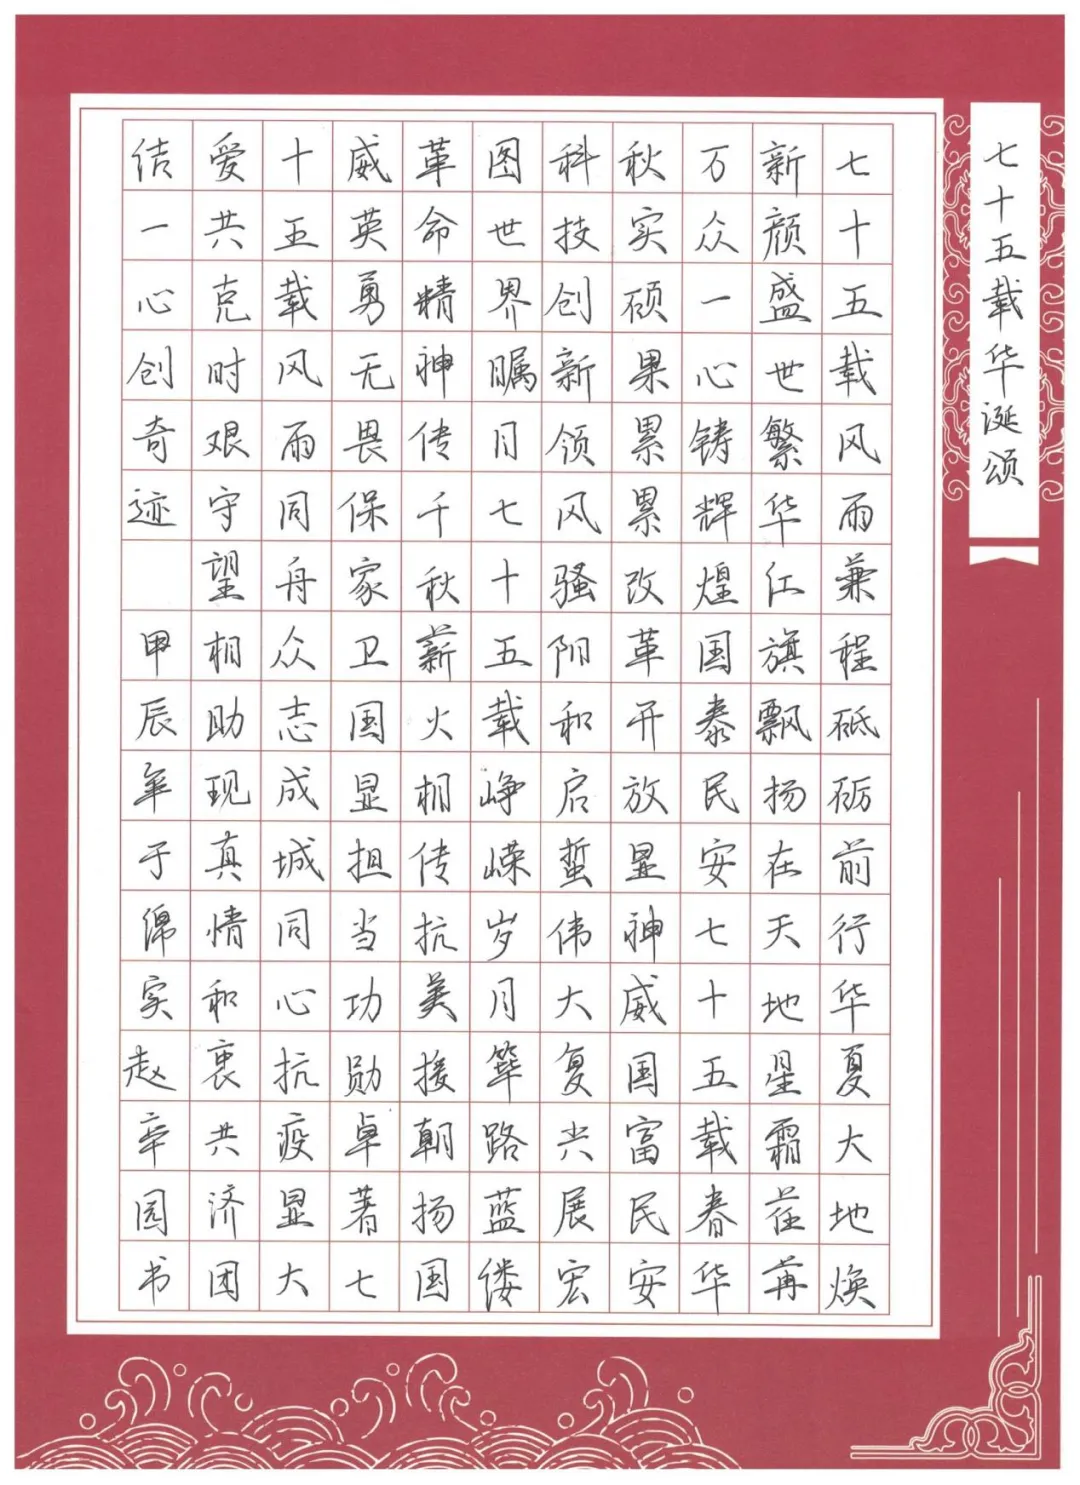 七十五载华诞颂
七十五载风雨兼程砥砺前行华夏大地焕
新颜盛世繁华红旗飘扬在天地星霜荏苒
万众一心铸辉煌国泰民安七十五载春华
秋实硕果累累改革开放显神威国富民安
科技创新领风骚阳和启蛰伟大复兴展宏
图世界瞩目七十五载峥嵘岁月筚路蓝缕
革命精神传千秋薪火相传抗美援朝扬国
威英勇无畏保家卫国显担当功勋卓著七
十五载风雨同舟众志成城同心抗疫显大
爱共克时艰守望相助现真情和衷共济团
结一心创奇迹 甲辰年于绵实赵辛园书